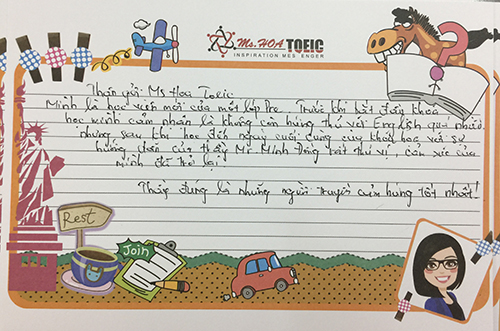 Ms.HOA TOEIC
INSPIRATION MESSENGER
Thân gửi: Ms Hoa Toeic
Mình là học viên mới của một lớp Pre. Trước khi bắt đầu khóa
học mình cảm nhận là không còn hứng thú với English quá nhiều.
nhưng sau khi học đến ngày cuối cùng khóa học với sự
hướng dẫn của thầy Mr. Minh Đăng rất thú vị, cảm xúc của
mình đã trở lại
Thầy đúng là những người truyền cảm hứng tốt nhất!
Rest
Join